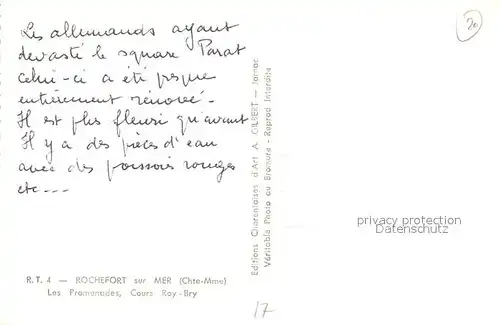 Les allemands ayant
devasté le square Parat
celui-ci a été presque
entièrement rénové -
Il est plus fleuri qu'avant
Il y a des pièces d'eau
avec des poissons rouges
etc ---
R. T. 4 — ROCHEFORT sur MER (Chte-Mme)
Les Promenades, Cours Roy-Bry
Editions Charentaises d'Art A. GILBERT — Jarnac
Véritable Photo au Bromure - Reprod Interdite
20
privacy protection by
AK-Ansichtskarten.de
17